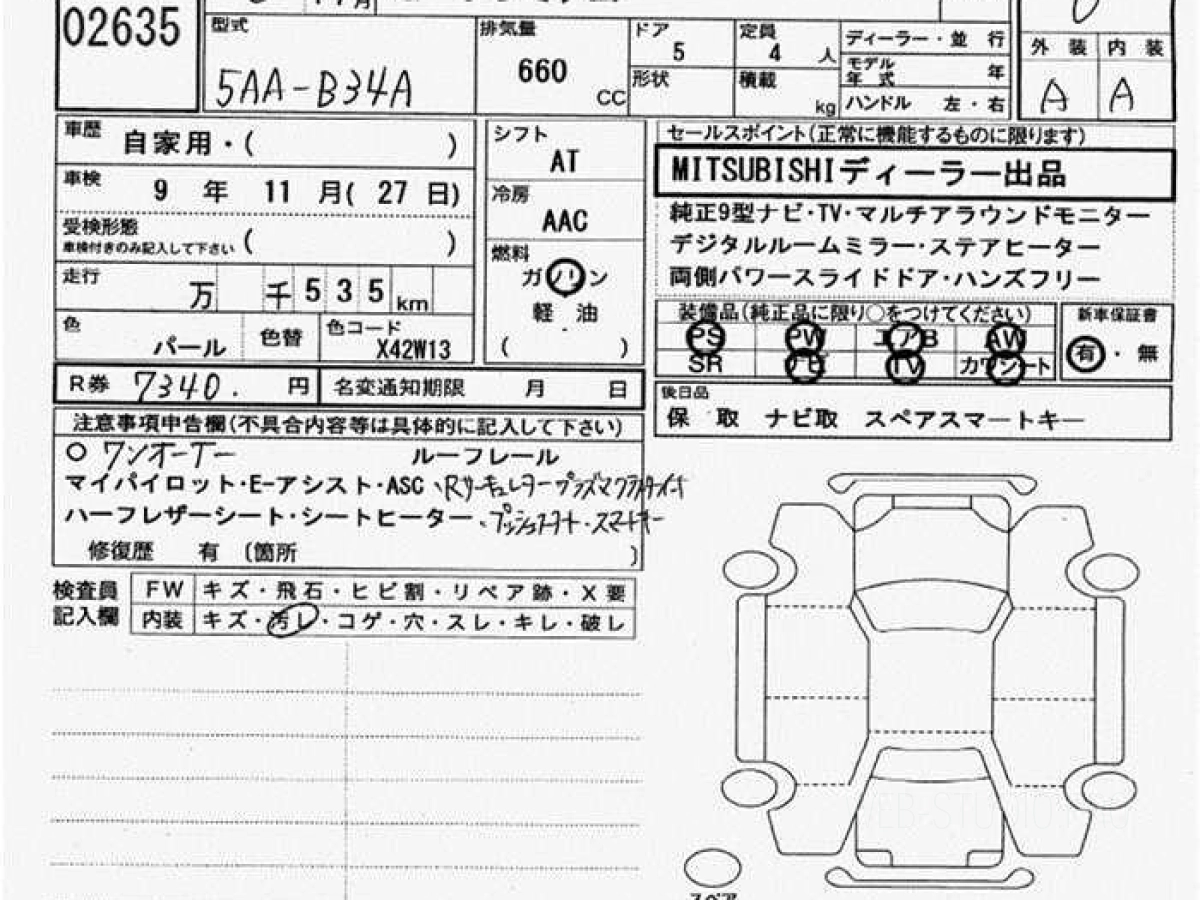 02635
型式
5AA-B34A
排気量
660
CC
ドア
5
形状
定員
4 人
積載
kg
ディーラー・並 行
モデル
年 式 年
ハンドル 左・右
外 装 内 装
A A
車歴 自家用・( )
車検 9 年 11 月( 27 日)
受検形態
車検付きのみ記入して下さい ( )
走行 万 千 5 3 5 km
色 パール 色替 色コード X42W13
シフト
AT
冷房
AAC
燃料
ガソリン
軽 油
( )
セールスポイント(正常に機能するものに限ります)
MITSUBISHIディーラー出品
純正9型ナビ・TV・マルチアラウンドモニター
デジタルルームミラー・ステアヒーター
両側パワースライドドア・ハンズフリー
装備品(純正品に限り○をつけてください)
PS PW エアB AW
SR ナビ TV カワシート
新車保証書
有・無
R券 7340. 円 名変通知期限 月 日
後日品
保 取 ナビ取 スペアスマートキー
注意事項申告欄(不具合内容等は具体的に記入して下さい)
○ ワンオーナー ルーフレール
マイパイロット・E-アシスト・ASC、Rサーキュレーター
ハーフレザーシート・シートヒーター、プッシュスタート・スマートキー
修復歴 有 〔箇所 〕
検査員
記入欄
FW キズ・飛石・ヒビ割・リペア跡・X要
内装 キズ・汚レ・コゲ・穴・スレ・キレ・破レ
スペア